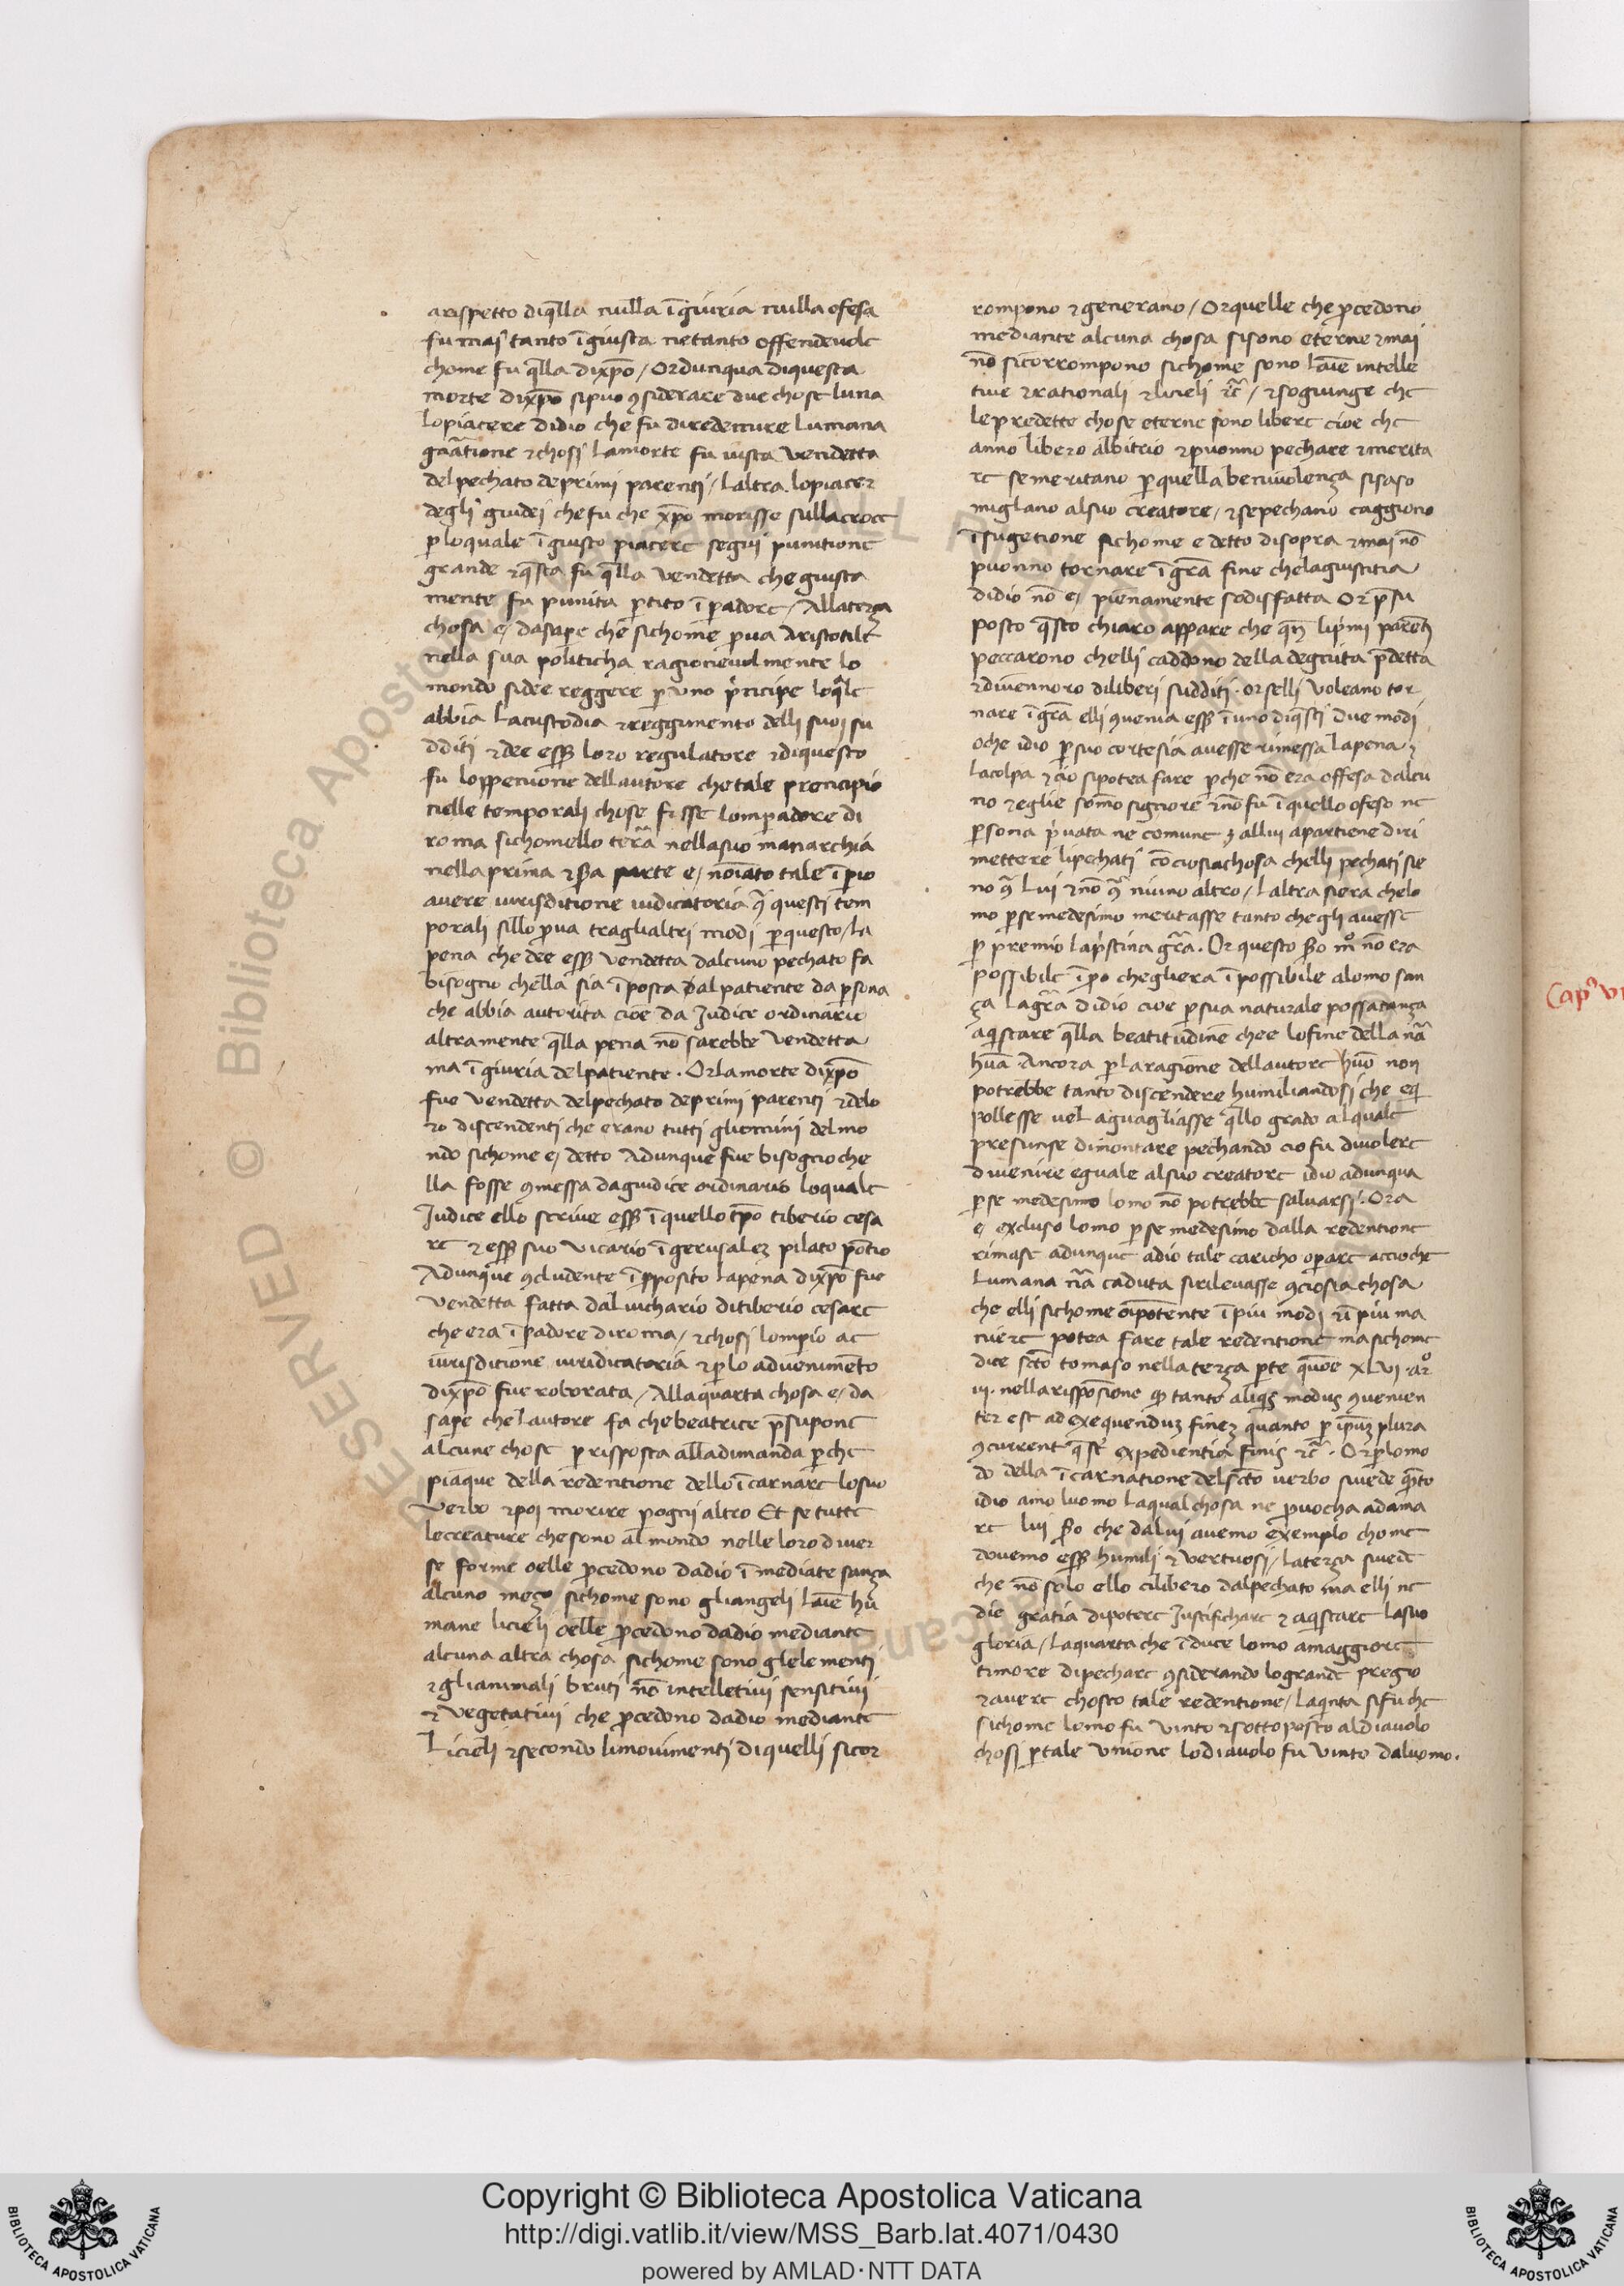 arispetto diq̄lla nulla īgiuria nulla ofesa
fu mai tanto īgiusta netanto offendeuole
chome fu q̄lla dixp̄o / Ordunqua diquesta
morte dixp̄o sipuo ꝯsiderare due chose luna
lopiacere didio che fu diredemire lumana
gn̄atione ⁊chosi lamorte fu iusta vendetta
delpechato deprimi parenti / laltra lopiacer
degli giudei chefu che xp̄o morisse sullacroce
ꝑ loquale īgiusto piacere segui punitione
grande ⁊q̄sta fu q̄lla vendetta che giusta
mente fu punita ꝑ tito īꝑadore / Allaterça
chosa e / dasape che sichome ꝓua Aristotile
nella sua politicha ragioneuolmente lo
mondo sidee reggere ꝑ uno p̄ncipe loq̄le
abbia lacustodia ⁊reggimento delli suoi su
dditi ⁊dee esse͂ loro regulatore ⁊diquesto
fu loppenione dellautore chetale prencipio
nelle temporali chose fusse lomꝑadore di
roma sichomello
nella prima ⁊ parte e / noīato tale īꝑio
auere iurisditione iudicatoria questi tem
porali sillo ꝓua traglialtri modi ꝑ questo / la
pena che dee esse͂ vendetta dalcuno pechato fa
bisogno chella sia īposta dalpatiente da ꝑsona
che abbia autorita cioe da Iudice ordinario
altramente q̄lla pena nō sarebbe vendetta
ma īgiuria delpatiente . Orlamorte dixp̄o
fue vendetta delpechato deprimi parenti ⁊delo
ro discendenti che erano tutti gliomini delmo
ndo sichome e / detto Adunque fue bisogno che
lla fosse ꝯmessa dagiudice ordinario loquale
Iudice ello scriue esse͂ ī quello tp̄o tiberio cesa
re ⁊ esse͂ suo vicario ī gerusalez pilato pōtio
Adunque ꝯcludente īꝓposito lapena dixp̄o fue
vendetta fatta dal vichario ditiberio cesare
che era īꝑadore diroma / ⁊chosi lompio ac
iurisditione iuridicatoria ⁊ꝑ lo aduenimēto
dixp̄o fue roborata / Allaquarta chosa e / da
sape che lautore fa chebeatrice p̄supone
alcune chose ꝑ risposta alladimanda ꝑche
piaque della redentione dello īcarnare losuo
verbo ⁊poi morire ꝑogni altro Et se tutte
lecreature chesono al mondo nelle loro diuer
se forme oelle ꝓcedono dadio īmediate sança
alcuno meço sichome sono gliangeli laīe hu
mane licieli oelle ꝓcedono dadio mediante
alcuna altra chosa sichome sono glelementi
⁊glianimali bruti nō intelletiui sensitiui
⁊ vegetatiui che ꝓcedono dadio mediante
licieli ⁊secondo limouimenti diquelli sicor
rompono ⁊generano / Orquelle che ꝓcedono
mediante alcuna chosa sisono eterne ⁊mai
nō sicorrompono sichome sono laīe intelle
tiue ⁊rationali ⁊licieli ⁊c̄ / ⁊sogiunge che
lepredette chose eterne sono libere cioe che
anno libero albitrio ⁊puonno pechare ⁊merita
re semeritano ꝑ quella beniuolença sisaso
miglano alsuo creatore / ⁊sepechano caggiono
īsugetione sichome e detto disopra ⁊mai nō
puonno tornare ī gr̄a fine chelagiustitia
didio nō e / pienamente sodisfatta Or p̄su
posto q̄sto chiaro appare che qn̄ lip̄mi parēti
peccarono chelli caddono della degnita p̄detta
⁊diuennoro diliberi sudditi . orselli voleano tor
nare ī gr̄a elli ꝯuenia esse͂ ī uno diq̄sti due modi
oche idio ꝑ suo cortesia auesse rimessa lapena ⁊
lacolpa ⁊cio sipotea fare ꝑche nō era offesa dalcu
no ⁊eglie somo signore ⁊nō fu ī quello ofeso ne
ꝑsona p̄uata ne comune ⁊ allui apartiene diri
mettere lipechati cōciosiachosa chelli pechati sie
no lui ⁊nō niuno altro / laltra siera chelo
mo ꝑ semedesimo meritasse tanto chegli auesse
ꝑ premio lap̄stina gr̄a . Or questo m° nō era
possibile īꝑo chegliera īpossibile alomo san
ça lagr̄a didio cioe ꝑ sua naturale possatança
aq̄istare q̄lla beatitudine chee lofine della nā
huā . Ancora ꝑ laragione dellautore huō non
potrebbe tanto discendere humiliandosi che eq̄i
pollesse uel aguagliasse q̄llo grado alquale
presunse dimontare pechando cio fu diuolere
diuenire eguale alsuo creatore idio adunqua
ꝑse medesimo lomo nō potrebbe saluarsi . Ora
e excluso lomo ꝑ se medesimo dalla redentione
rimase adunque adio tale caricho oꝑare accioche
lumana nā caduta sirileuasse ꝯciosiachosa
che elli sichome oīpotente ī piu modi ⁊ī piu ma
niere potea fare tale redentione ma sichome
dice sc̄to tomaso nella terça ꝑte quōe xlvi . ar°
iii . nellarisposione tanto aliquis modus ꝯuenien
ter est ad exequenduz finez quanto ꝑ ipsuz plura
ꝯcurrent expedientia finis ⁊c̄ . Orꝑ lomo
do della īcarnatione delsc̄to uerbo siuede quāto
idio amo luomo laqualchosa ne ꝓuocha adama
re lui che dalui auemo exemplo chome
douemo esse͂ humili ⁊vertuosi / laterça siuede
che nō solo ello cilibero dalpechato ma elli ne
die gratia dipotere Iustifichare ⁊ aq̄istare lasuo
gloria / laquarta che īduce lomo amaggiore
timore dipechare ꝯsiderando logrande pregio
⁊auere chosto tale redentione / laquīta sifu che
sichome lomo fu vinto ⁊sottoposto aldiauolo
chosi ꝑ tale vnione lodiauolo fu vinto daluomo .
Cap°
Copyright © Biblioteca Apostolica Vaticana
http://digi.vatlib.it/view/MSS_Barb.lat.4071/0430
powered by AMLAD·NTT DATA
BIBLIOTECA APOSTOLICA VATICANA
BIBLIOTECA APOSTOLICA VATICANA